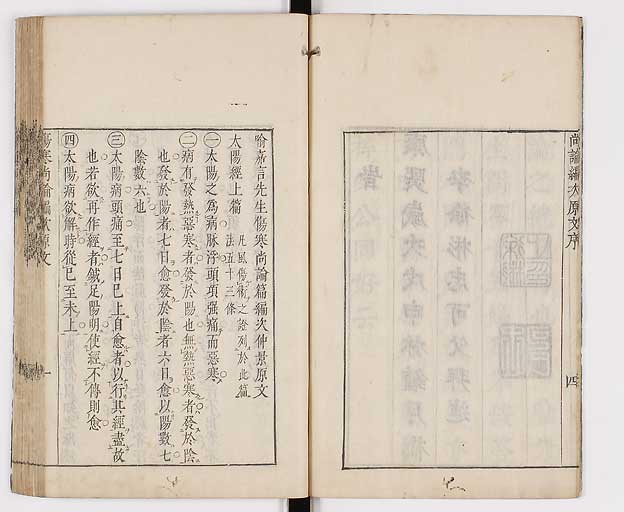 尚論編次原文序
四
喻嘉言先生傷寒尚論篇編次仲景原文
太陽經上篇
凡風傷衛之證列於此篇
法五十三條
一太陽之爲病脉浮頭項强痛而惡寒
二病有發熱惡寒者發於陽也無熱惡寒者發於陰
也發於陽者七日愈發於陰者六日愈以陽數七
陰數六也
三太陽病頭痛至七日已上自愈者以行其經盡故
也若欲再作經者鍼足陽明使經不傳則愈
四太陽病欲解時從巳至未上
傷寒尚論編次原文
一